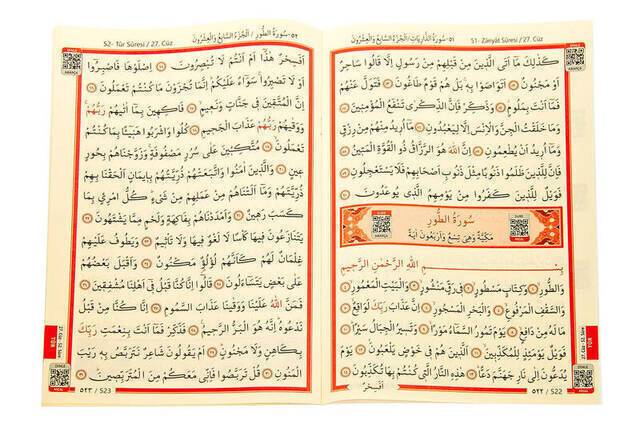 ٥١- سُورَةُ الذَّارِيَاتِ / اَلْجُزْءُ السَّابِعُ وَالْعِشْرُونَ
51- Zâriyât Sûresi / 27. Cüz
كَذٰلِكَ مَٓا اَتَى الَّذٖينَ مِنْ قَبْلِهِمْ مِنْ رَسُولٍ اِلَّا قَالُوا سَاحِرٌ
اَوْ مَجْنُونٌ ﴿٥٢﴾ اَتَوَاصَوْا بِهٖ بَلْ هُمْ قَوْمٌ طَاغُونَ ﴿٥٣﴾ فَتَوَلَّ عَنْهُمْ
فَمَٓا اَنْتَ بِمَلُومٍ ﴿٥٤﴾ وَذَكِّرْ فَاِنَّ الذِّكْرٰى تَنْفَعُ الْمُؤْمِنٖينَ ﴿٥٥﴾
وَمَا خَلَقْتُ الْجِنَّ وَالْاِنْسَ اِلَّا لِيَعْبُدُونِ ﴿٥٦﴾ مَٓا اُرٖيدُ مِنْهُمْ مِنْ رِزْقٍ
وَمَٓا اُرٖيدُ اَنْ يُطْعِمُونِ ﴿٥٧﴾ اِنَّ اللّٰهَ هُوَ الرَّزَّاقُ ذُو الْقُوَّةِ الْمَتٖينُ ﴿٥٨﴾
فَاِنَّ لِلَّذٖينَ ظَلَمُوا ذَنُوبًا مِثْلَ ذَنُوبِ اَصْحَابِهِمْ فَلَا يَسْتَعْجِلُونِ ﴿٥٩﴾
فَوَيْلٌ لِلَّذٖينَ كَفَرُوا مِنْ يَوْمِهِمُ الَّذٖى يُوعَدُونَ ﴿٦٠﴾
سُورَةُ الطُّورِ
مَكِّيَّةٌ وَهِيَ تِسْعٌ وَاَرْبَعُونَ اٰيَةً
بِسْمِ اللّٰهِ الرَّحْمٰنِ الرَّحٖيمِ
وَالطُّورِ ﴿١﴾ وَكِتَابٍ مَسْطُورٍ ﴿٢﴾ فٖى رَقٍّ مَنْشُورٍ ﴿٣﴾ وَالْبَيْتِ الْمَعْمُورِ ﴿٤﴾
وَالسَّقْفِ الْمَرْفُوعِ ﴿٥﴾ وَالْبَحْرِ الْمَسْجُورِ ﴿٦﴾ اِنَّ عَذَابَ رَبِّكَ لَوَاقِعٌ ﴿٧﴾
مَا لَهُ مِنْ دَافِعٍ ﴿٨﴾ يَوْمَ تَمُورُ السَّمَٓاءُ مَوْرًا ﴿٩﴾ وَتَسٖيرُ الْجِبَالُ سَيْرًا ﴿١٠﴾
فَوَيْلٌ يَوْمَئِذٍ لِلْمُكَذِّبٖينَ ﴿١١﴾ اَلَّذٖينَ هُمْ فٖى خَوْضٍ يَلْعَبُونَ ﴿١٢﴾ يَوْمَ
يُدَعُّونَ اِلٰى نَارِ جَهَنَّمَ دَعًّا ﴿١٣﴾ هٰذِهِ النَّارُ الَّتٖى كُنْتُمْ بِهَا تُكَذِّبُونَ ﴿١٤﴾
اَفَسِحْرٌ
٥٢٢ / 522
27. Cüz 52. Sûre
TÛR
٥٢- سُورَةُ الطُّورِ / اَلْجُزْءُ السَّابِعُ وَالْعِشْرُونَ
52- Tûr Sûresi / 27. Cüz
اَفَسِحْرٌ هٰذَٓا اَمْ اَنْتُمْ لَا تُبْصِرُونَ ﴿١٥﴾ اِصْلَوْهَا فَاصْبِرُٓوا
اَوْ لَا تَصْبِرُوا سَوَٓاءٌ عَلَيْكُمْ اِنَّمَا تُجْزَوْنَ مَا كُنْتُمْ تَعْمَلُونَ ﴿١٦﴾
اِنَّ الْمُتَّقٖينَ فٖى جَنَّاتٍ وَنَعٖيمٍ ﴿١٧﴾ فَاكِهٖينَ بِمَٓا اٰتٰيهُمْ رَبُّهُمْ
وَوَقٰيهُمْ رَبُّهُمْ عَذَابَ الْجَحٖيمِ ﴿١٨﴾ كُلُوا وَاشْرَبُوا هَنٖٓيئًا بِمَا كُنْتُمْ
تَعْمَلُونَ ﴿١٩﴾ مُتَّكِـٖٔينَ عَلٰى سُرُرٍ مَصْفُوفَةٍ وَزَوَّجْنَاهُمْ بِحُورٍ
عٖينٍ ﴿٢٠﴾ وَالَّذٖينَ اٰمَنُوا وَاتَّبَعَتْهُمْ ذُرِّيَّتُهُمْ بِاٖيمَانٍ اَلْحَقْنَا بِهِمْ
ذُرِّيَّتَهُمْ وَمَٓا اَلَتْنَاهُمْ مِنْ عَمَلِهِمْ مِنْ شَیْءٍ كُلُّ امْرِئٍ بِمَا
كَسَبَ رَهٖينٌ ﴿٢١﴾ وَاَمْدَدْنَاهُمْ بِفَاكِهَةٍ وَلَحْمٍ مِمَّا يَشْتَهُونَ ﴿٢٢﴾
يَتَنَازَعُونَ فٖيهَا كَاْسًا لَا لَغْوٌ فٖيهَا وَلَا تَاْثٖيمٌ ﴿٢٣﴾ وَيَطُوفُ عَلَيْهِمْ
غِلْمَانٌ لَهُمْ كَاَنَّهُمْ لُؤْلُؤٌ مَكْنُونٌ ﴿٢٤﴾ وَاَقْبَلَ بَعْضُهُمْ
عَلٰى بَعْضٍ يَتَسَٓاءَلُونَ ﴿٢٥﴾ قَالُٓوا اِنَّا كُنَّا قَبْلُ فٖٓى اَهْلِنَا مُشْفِقٖينَ ﴿٢٦﴾
فَمَنَّ اللّٰهُ عَلَيْنَا وَوَقٰينَا عَذَابَ السَّمُومِ ﴿٢٧﴾ اِنَّا كُنَّا مِنْ قَبْلُ
نَدْعُوهُ اِنَّهُ هُوَ الْبَرُّ الرَّحٖيمُ ﴿٢٨﴾ فَذَكِّرْ فَمَٓا اَنْتَ بِنِعْمَتِ رَبِّكَ
بِكَاهِنٍ وَلَا مَجْنُونٍ ﴿٢٩﴾ اَمْ يَقُولُونَ شَاعِرٌ نَتَرَبَّصُ بِهٖ رَيْبَ
الْمَنُونِ ﴿٣٠﴾ قُلْ تَرَبَّصُوا فَاِنّٖى مَعَكُمْ مِنَ الْمُتَرَبِّصٖينَ ﴿٣١﴾
٥٢٣ / 523
27. Cüz 52. Sûre
TÛR